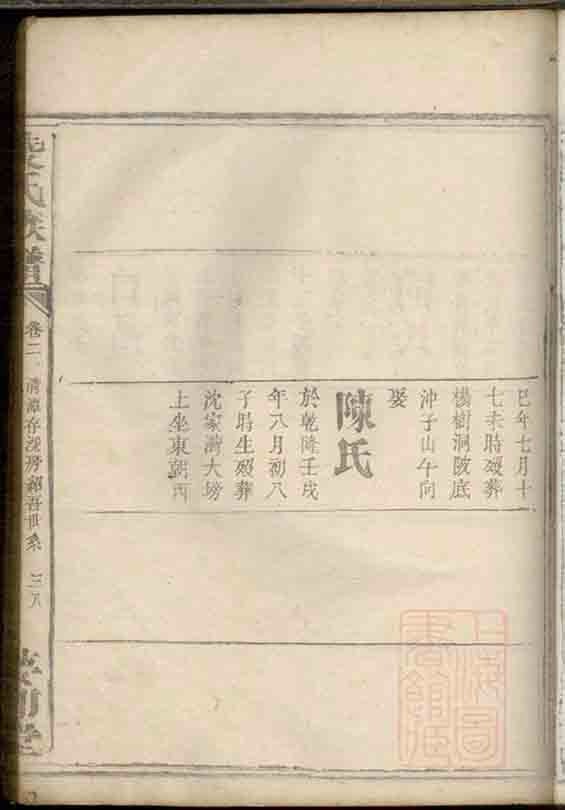 巳年七月十
七未時歿葬
楊樹洞陂底
沖子山午向
娶
陳氏
於乾隆壬戌
年八月初八
子時生歿葬
沈家灣大塝
上坐東朝西
氏族譜
卷二
清源存沒房紹吾世系
三八
堂
上海圖
書館藏